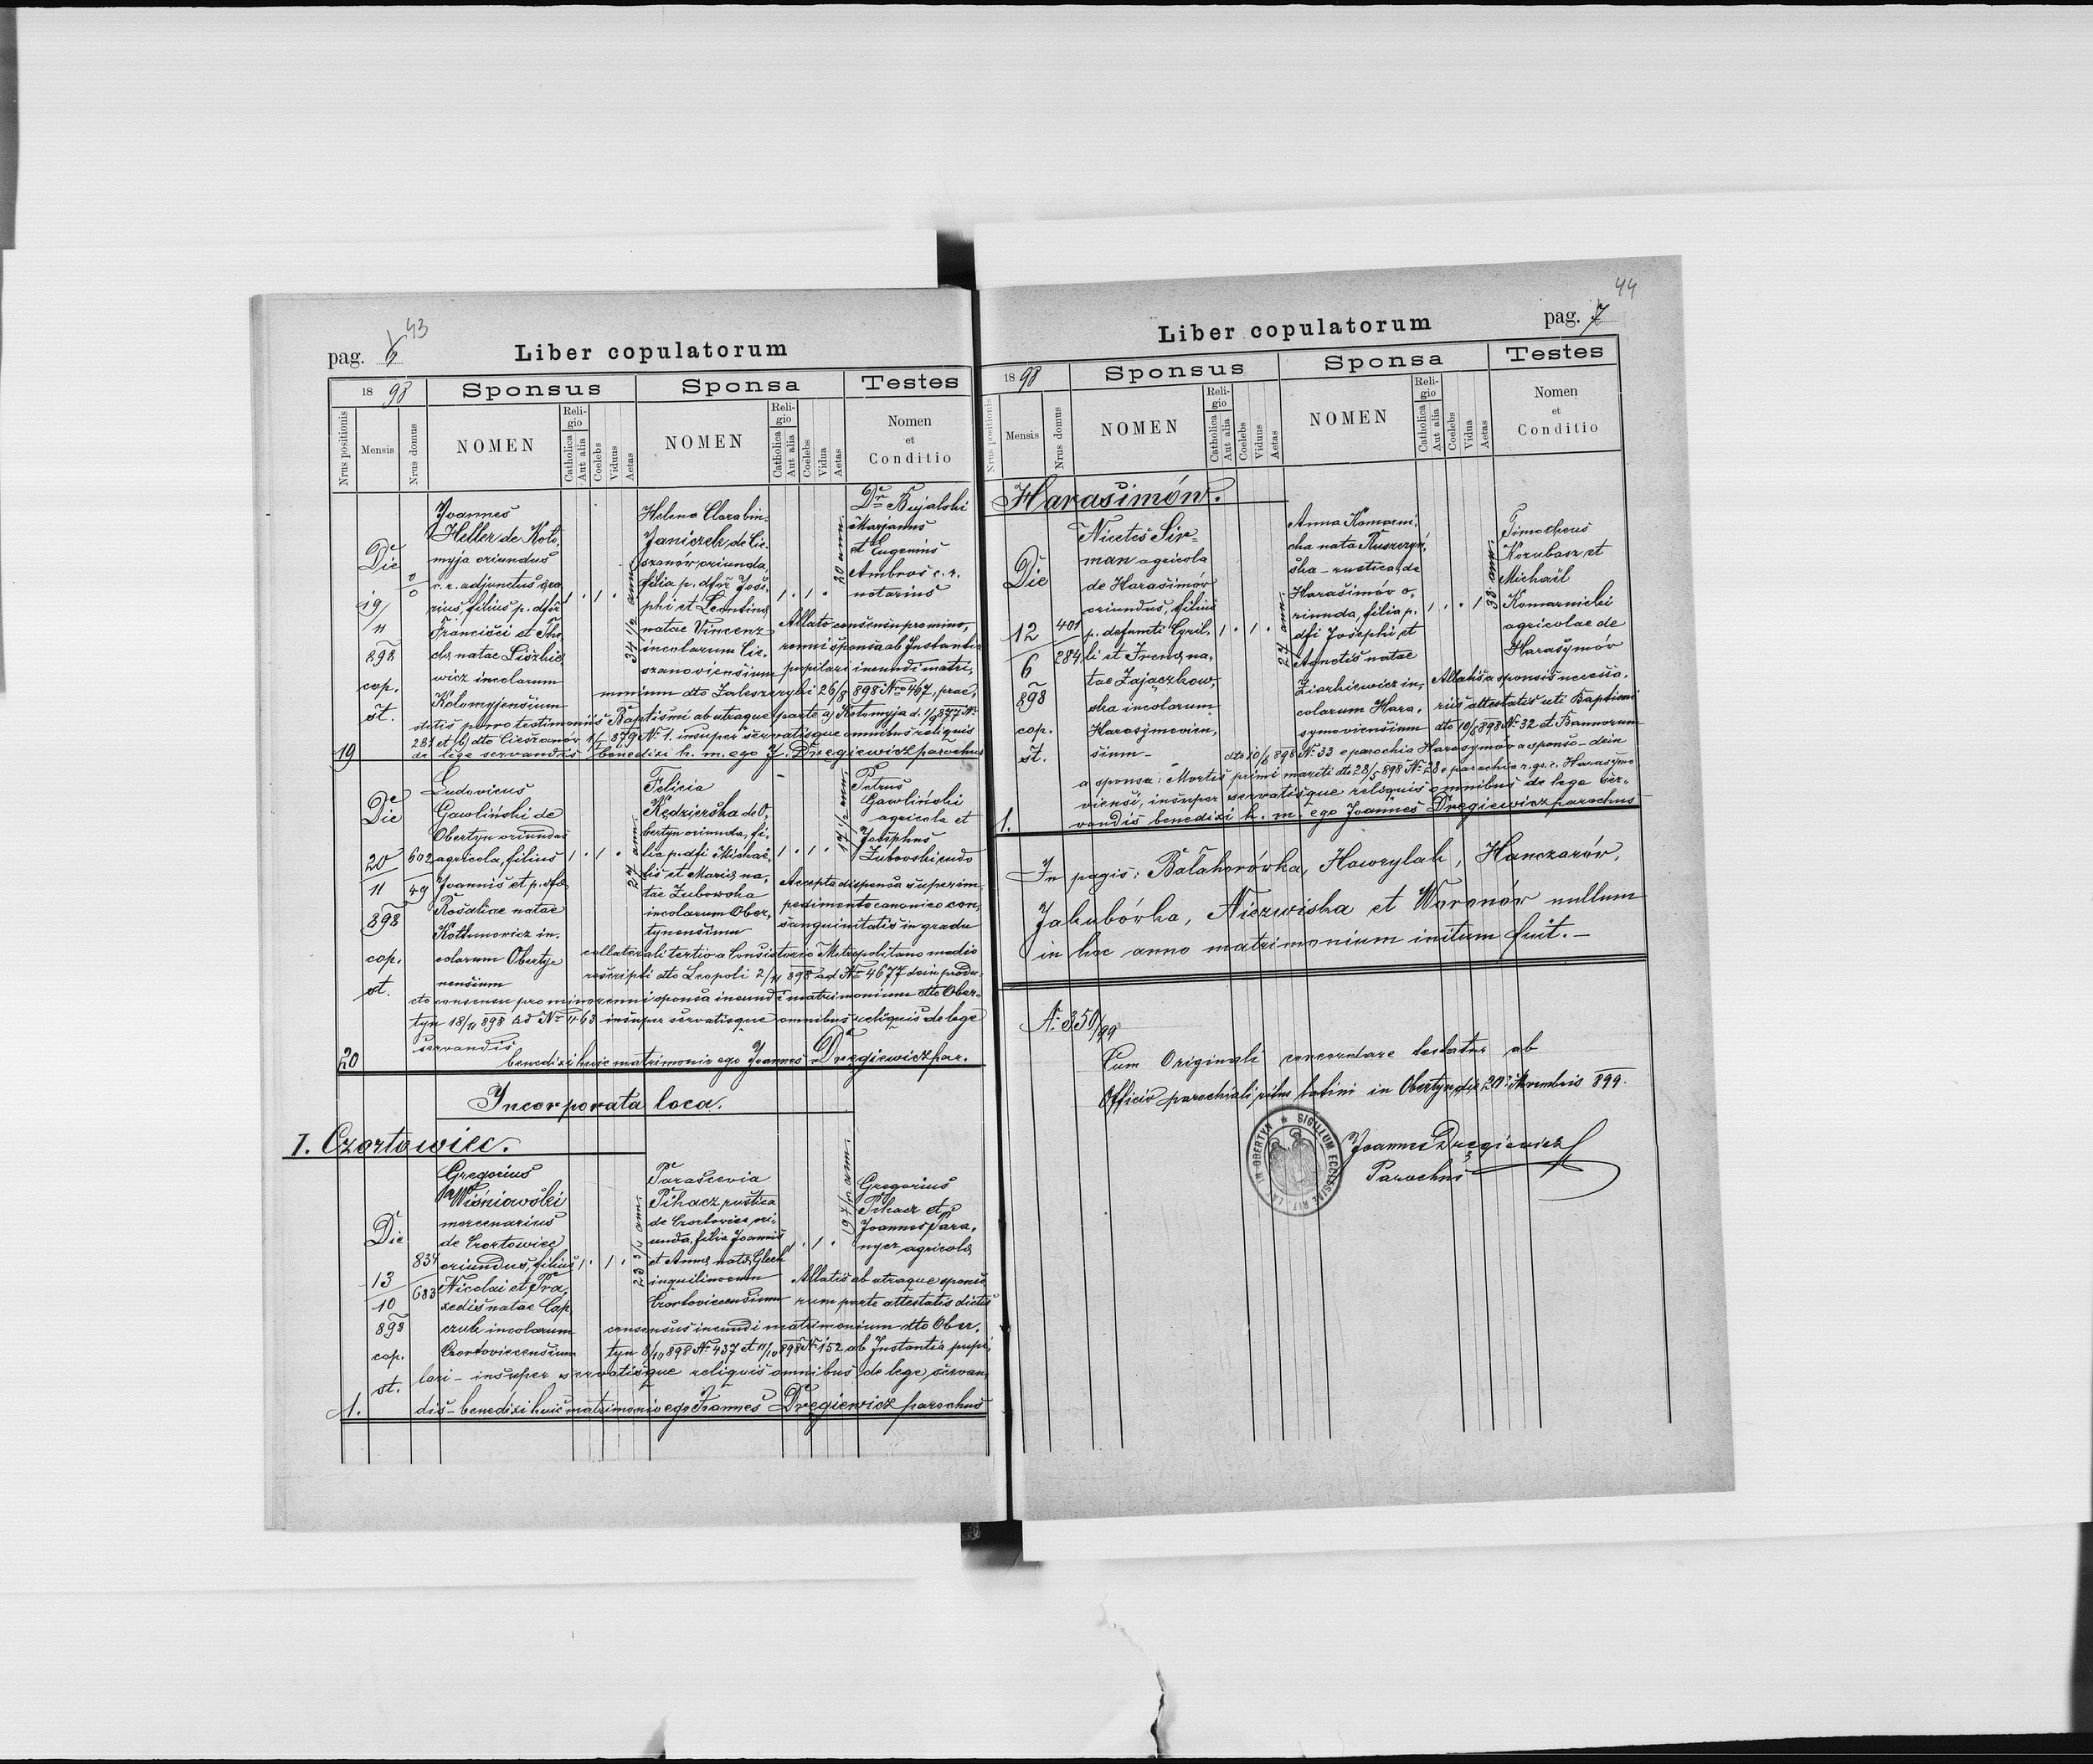 43
pag. 6
Liber copulatorum
1898
Sponsus
Sponsa
Testes
Nrus positionis
Mensis
Nrus domus
NOMEN
Religio
Catholica
Aut alia
Coelebs
Viduus
Aetas
NOMEN
Religio
Catholica
Aut alia
Coelebs
Vidua
Aetas
Nomen
et
Conditio
19
Die
19/11
898
cop.
st.
Joannes
Heller de Koło,
myja oriundus
c. r. adjunctus
filius p.
Francisci et
natae
wicz incolarum
Kolomyjensium
1 . 1 .
34 1/2 ann.
Helena Clara bin.
Janiczek, de Cie.
szanów, oriunda,
filia p. Jose,
phi et Leontinae
natae Vincenz
incolarum Cie.
szanoviensium
1 . 1 .
20 ann.
Dr. Bujalski
Marjanus
et Eugenius
Ambros c. r.
notarius
Allato consensu pro mino,
renni sponsa ab Instantia
pupilari ineundi matri,
monium dto Zaleszczyki 26/8 898 Nro 467, prae,
stitis porro testimoniis Baptismi ab utraque parte a) Kołomyja d. 1/9 877 No
281 et b) dto Cieszanów 879 No 1. insuper servatisque omnibus reliquis
de lege servandis benedixi h. m. ego J. Dręgiewicz parochus
20
Die
20/11
898
cop.
st.
602
49
Ludovicus
Gawliński de
Obertyn oriundus
agricola, filius
Joannis et p. dfae
Rosaliae natae
in,
colarum Obertyn
nensium
1 . 1 .
27 ann.
Felicia
Kędzierska de O,
bertyn oriunda, fi,
lia p. dfi Michaë,
lis et Mariae na,
tae Zubowska
incolarum Ober,
tynensium
1 . 1 .
17 1/2 ann.
Petrus
Gawliński
agricola et
Josephus
Zubowski
Accepta dispensa super im,
pedimento canonico con,
sanguinitatis in gradu
collaterali tertio a Consistorio Metropolitano medio
rescripti dto Leopoli 2/11 898 ad No 4677 dein produ,
cto consensu pro minorenni sponsa ineundi matrimonium dto Ober,
tyn 18/11 898 ad No 463 insuper servatisque omnibus reliquis de lege
servandis
benedixi huic matrimonio ego Joannes Dręgiewicz par.
Incorporata loca.
I. Czortowiec.
1.
Die
13/10
898
cop.
st.
834
683
Gregorius
Wiśniowski
mercenarius
de Czortowiec
oriundus, filius
Nicolai et Pra,
xedis natae Cap,
czuk incolarum
Czortoviecensium
1 . 1 .
23 3/4 ann.
Parascevia
Pihacz rustica
de Czortowiec ori,
unda, filia Joannis
et Annae natae Glech
inquilinorum
Czortoviecensium
1 .
19 7/12 ann.
Gregorius
Pihacz et
Joannes Para,
nycz agricolae
Allatis ab utraque sponso,
rum parte attestatis dictis
consensus ineundi matrimonium dto Ober,
tyn 8/10 898 No 437 et 11/10 898 No 152 ab Instantia pupi,
lari - insuper servatisque religuis omnibus de lege servan,
dis - benedixi huic matrimonio ego Joannes Dręgiewicz parochus
44
pag. 7
Liber copulatorum
1898
Sponsus
Sponsa
Testes
Nrus positionis
Mensis
Nrus domus
NOMEN
Religio
Catholica
Aut alia
Coelebs
Viduus
Aetas
NOMEN
Religio
Catholica
Aut alia
Coelebs
Vidua
Aetas
Nomen
et
Conditio
Harasimów.
1.
Die
12
6
898
cop.
st.
401
284
Nicetes Sir=
man agricola
de Harasimów
oriundus, filius
p. defuncti Cyril,
li et Irenae na,
tae Zajączkow,
ska incolarum
Harasymovien,
sium -
1 . 1 .
27 ann.
Anna Komarni,
cka nata Ruszczyń,
ska - rustica de
Harasimów o,
riunda, filia p.
dfi Josephi et
Agnetis natae
Ziarkiewicz in,
colarum Hara,
symoviensium
1 . . 1
33 ann.
Timotheus
Kozubasz et
Michaël
Komarnicki
agricolae de
Harasymów
Allatis a sponsis necessa,
riis attestatis uti Baptismi
dto 10/6 898 No 32 et Bannorum
dto 10/6 898 No 33 e parochia Harasymów a sponso - dein
a sponsa: Mortis primi mariti dto 28/5 898 No 28 e parochia r. gr. c. Harasymo
viensi, insuper servatisque reliquis omnibus de lege ser=
vandis benedixi h. m. ego Joannes Dręgiewicz parochus
In pagis: Bałahorówka, Hawrylak, Hanczarów,
Jakubówka, Niezwiska et Woronów nullum
in hoc anno matrimonium initum fuit. -
No 350/99
Cum Originali concordare testatur ab
Officio parochiali ritus latini in Obertyn, die 20 Novembris 899.
SIGILLUM ECCLESIAE RIT. LAT. IN OBERTYN
Joannes Dręgiewicz
Parochus